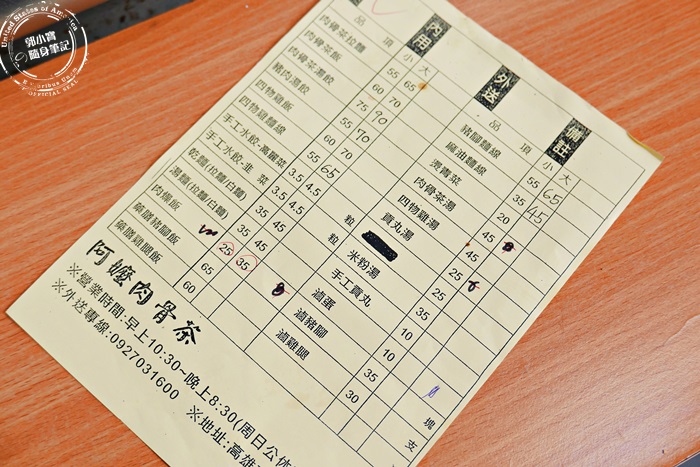 United States of America
郭小寶
隨身筆記
OFFICIAL SEAL
品項 小 大 內用 外送
肉骨茶拉麵 55 65
肉骨茶飯 60 70
肉骨茶湯餃 75 90
豬肉湯餃 55 70
四物雞飯 60 70
四物雞麵線 55 65
手工水餃-高麗菜 3.5 4.5 粒
手工水餃-韭菜 3.5 4.5 粒
乾麵(拉麵/白麵) 35 45
湯麵(拉麵/白麵) 35 45
肉燥飯 25 35
藥膳豬腳飯 65
藥膳雞腿飯 60
品項 小 大 備註
豬腳麵線 55 65
麻油麵線 35 45
燙青菜 20
肉骨茶湯 45
四物雞湯 45
貢丸湯 25
米粉湯 35
手工貢丸 10
滷蛋 10
滷豬腳 35 塊
滷雞腿 30 支
阿嬤肉骨茶
※營業時間:早上10:30~晚上8:30(周日公休
※外送專線:0927031600
※地址:高雄